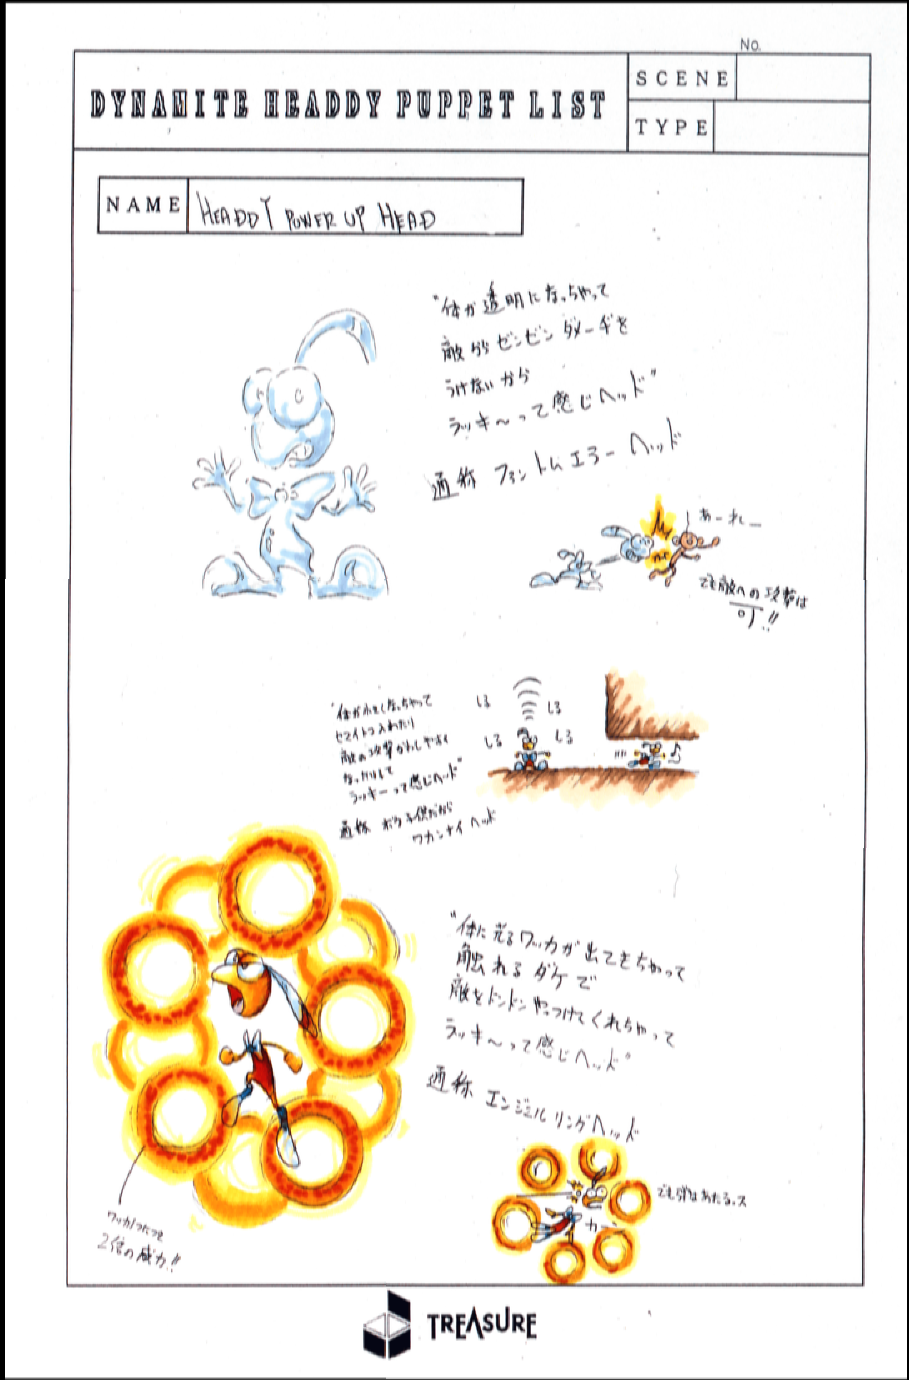 No.
DYNAMITE HEADDY PUPPET LIST
SCENE
TYPE
NAME
HEADDY POWER UP HEAD
"体が透明になっちゃって
敵からゼンゼンダメージを
うけないから
ラッキ〜って感じヘッド"
通称 ファントムエラーヘッド
あーれー
でも敵への攻撃は
可!!
"体が小さくなっちゃって
セマイトコ入れたり
敵の攻撃かわしやすく
なったりして
ラッキーって感じヘッド"
通称 ボク子供だから
ワカンナイヘッド
しる
しる
しる
しる
♪
"体に光るワッカが出てきちゃって
触れるダケで
敵をドンドンやっつけてくれちゃって
ラッキ〜って感じヘッド"
通称 エンジェルリングヘッド
でも弾はあたるっス
カーン
ワッカ
2倍の威力!!
TREASURE